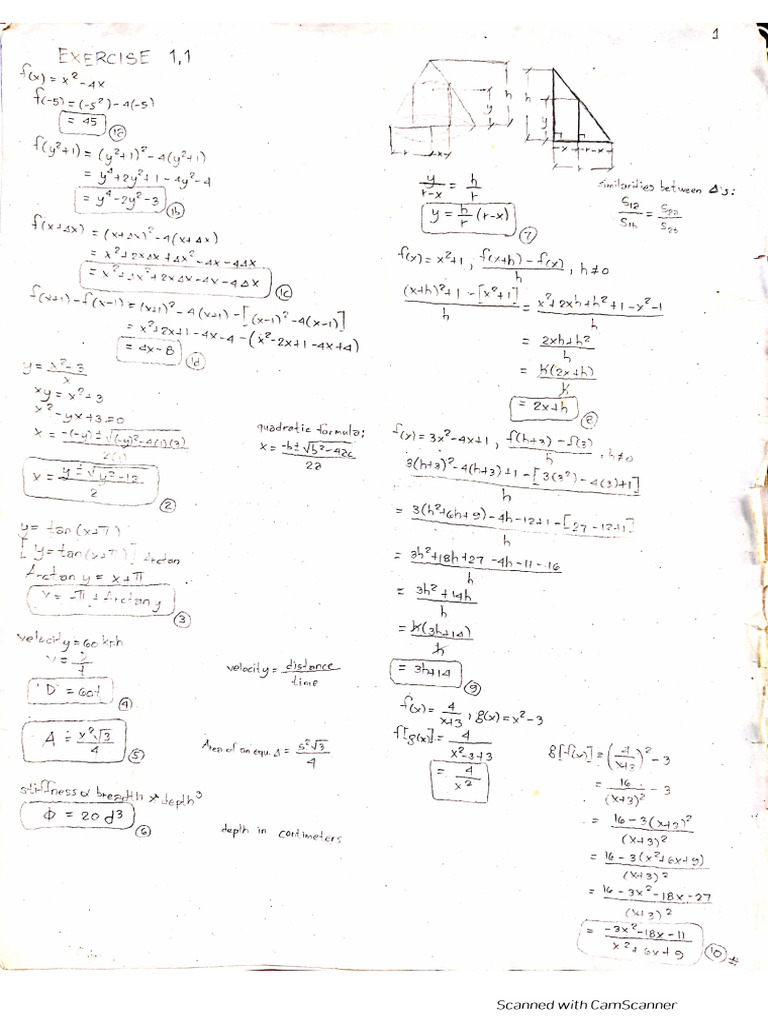 1
EXERCISE 1,1
f(x) = x² - 4x
f(-5) = (-5²) - 4(-5)
= 45
1a
f(y²+1) = (y²+1)² - 4(y²+1)
= y⁴ + 2y² + 1 - 4y² - 4
= y⁴ - 2y² - 3
1b
f(x+Δx) = (x+Δx)² - 4(x+Δx)
= x² + 2xΔx + Δx² - 4x - 4Δx
1c
f(x+1) - f(x-1) = (x+1)² - 4(x+1) - [(x-1)² - 4(x-1)]
= x² + 2x + 1 - 4x - 4 - (x² - 2x + 1 - 4x + 4)
= 4x - 8
1d
xy = x² + 3
x² - yx + 3 = 0
x = (-(-y) ± √((-y)² - 4(1)(3))) / 2(1)
quadratic formula:
x = (-b ± √(b² - 4ac)) / 2a
x = (y ± √(y² - 12)) / 2
2
y = tan(x+π)
[y = tan(x+π)] Arctan
Arctan y = x + π
x = -π + Arctan y
3
velocity = 60 kph
velocity = distance / time
"D" = 60t
4
A = x²√3 / 4
5
Area of an equ. Δ = s²√3 / 4
stiffness α breadth x depth³
Φ = 20 d³
6
depth in centimeters
h
y
r
x
h
y
x
r-x
r
y / (r-x) = h / r
y = h/r (r-x)
7
similarities between Δ's:
S1a / S1b = S2a / S2b
f(x) = x² + 1, (f(x+h) - f(x)) / h, h≠0
((x+h)² + 1 - [x²+1]) / h = (x² + 2xh + h² + 1 - x² - 1) / h
= (2xh + h²) / h
= h(2x+h) / h
= 2x+h
8
f(x) = 3x² - 4x + 1, (f(h+3) - f(3)) / h, h≠0
(3(h+3)² - 4(h+3) + 1 - [3(3²) - 4(3) + 1]) / h
= (3(h² + 6h + 9) - 4h - 12 + 1 - [27 - 12 + 1]) / h
= (3h² + 18h + 27 - 4h - 11 - 16) / h
= (3h² + 14h) / h
= h(3h+14) / h
= 3h+14
9
f(x) = 4 / (x+3), g(x) = x² - 3
f[g(x)] = 4 / (x² - 3 + 3)
= 4 / x²
g[f(x)] = (4 / (x+3))² - 3
= 16 / (x+3)² - 3
= (16 - 3(x+3)²) / (x+3)²
= (16 - 3(x² + 6x + 9)) / (x+3)²
= (16 - 3x² - 18x - 27) / (x+3)²
= (-3x² - 18x - 11) / (x² + 6x + 9)
10 #
Scanned with CamScanner